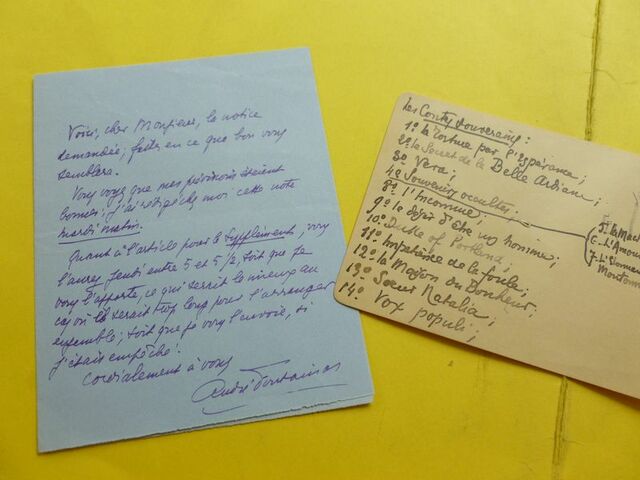 Voici, cher Monsieur, la notice
demandée; faites-en ce que bon vous
semblera.
Vous voyez que mes prévisions étaient
bonnes: j'ai rédigé chez moi cette note
mardi matin.
Quant à l'article pour le Supplément, vous
l'aurez jeudi entre 5 et 5 ½, soit que je
vous l'apporte, ce qui serait le mieux au
cas où il serait trop long pour l'arranger
ensemble; soit que je vous l'envoie, si
j'étais empêché.
Cordialement à vous
André Fontainas
Les Contes souverains:
1º la torture par l'espérance;
2º le Secret de la Belle Ardiane;
3º Vera;
4º Souvenirs occultes;
8º l'Inconnue;
9º le désir d'être un homme;
10º Duke of Portland;
11º Impatience de la foule;
12º la Maison du Bonheur;
13º Sœur Natalia;
14º Vox populi;
5- la Mach
6- L'Amour
7- L'Etonnan
Moutonne